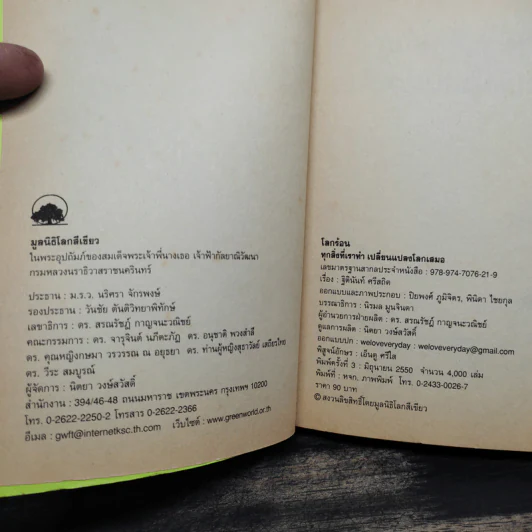 มูลนิธิโลกสีเขียว
ในพระอุปถัมภ์ของสมเด็จพระเจ้าพี่นางเธอ เจ้าฟ้ากัลยาณิวัฒนา
กรมหลวงนราธิวาสราชนครินทร์
ประธาน : ม.ร.ว. นริศรา จักรพงษ์
รองประธาน : วันชัย ตันติวิทยาพิทักษ์
เลขาธิการ : ดร. สรณรัชฎ์ กาญจนะวณิชย์
คณะกรรมการ : ดร. จารุจินต์ นภีตะภัฏ ดร. อนุชาติ พวงสำลี
ดร. คุณหญิงกษมา วรวรรณ ณ อยุธยา ดร. ท่านผู้หญิงสุธาวัลย์ เสถียรไทย
ดร. วีระ สมบูรณ์
ผู้จัดการ : นิตยา วงษ์สวัสดิ์
สำนักงาน : 394/46-48 ถนนมหาราช เขตพระนคร กรุงเทพฯ 10200
โทร. 0-2622-2250-2 โทรสาร 0-2622-2366
อีเมล : gwft@internetksc.th.com เว็บไซต์ : www.greenworld.or.th
โลกร้อน
ทุกสิ่งที่เราทำ เปลี่ยนแปลงโลกเสมอ
เลขมาตรฐานสากลประจำหนังสือ : 978-974-7076-21-9
เรื่อง : ฐิตินันท์ ศรีสถิต
ออกแบบและภาพประกอบ : ปิยพงศ์ ภูมิจิตร, พินิดา ไชยกุล
บรรณาธิการ : นิรมล มูนจินดา
ผู้อำนวยการฝ่ายผลิต : ดร. สรณรัชฎ์ กาญจนะวณิชย์
ดูแลการผลิต : นิตยา วงษ์สวัสดิ์
ออกแบบปก : weloveeveryday : weloveeveryday@gmail.com
พิสูจน์อักษร : เอ็นดู ศรีใส
พิมพ์ครั้งที่ 3 : มิถุนายน 2550 จำนวน 4,000 เล่ม
พิมพ์ที่ : หจก. ภาพพิมพ์ โทร. 0-2433-0026-7
ราคา 90 บาท
© สงวนลิขสิทธิ์โดยมูลนิธิโลกสีเขียว